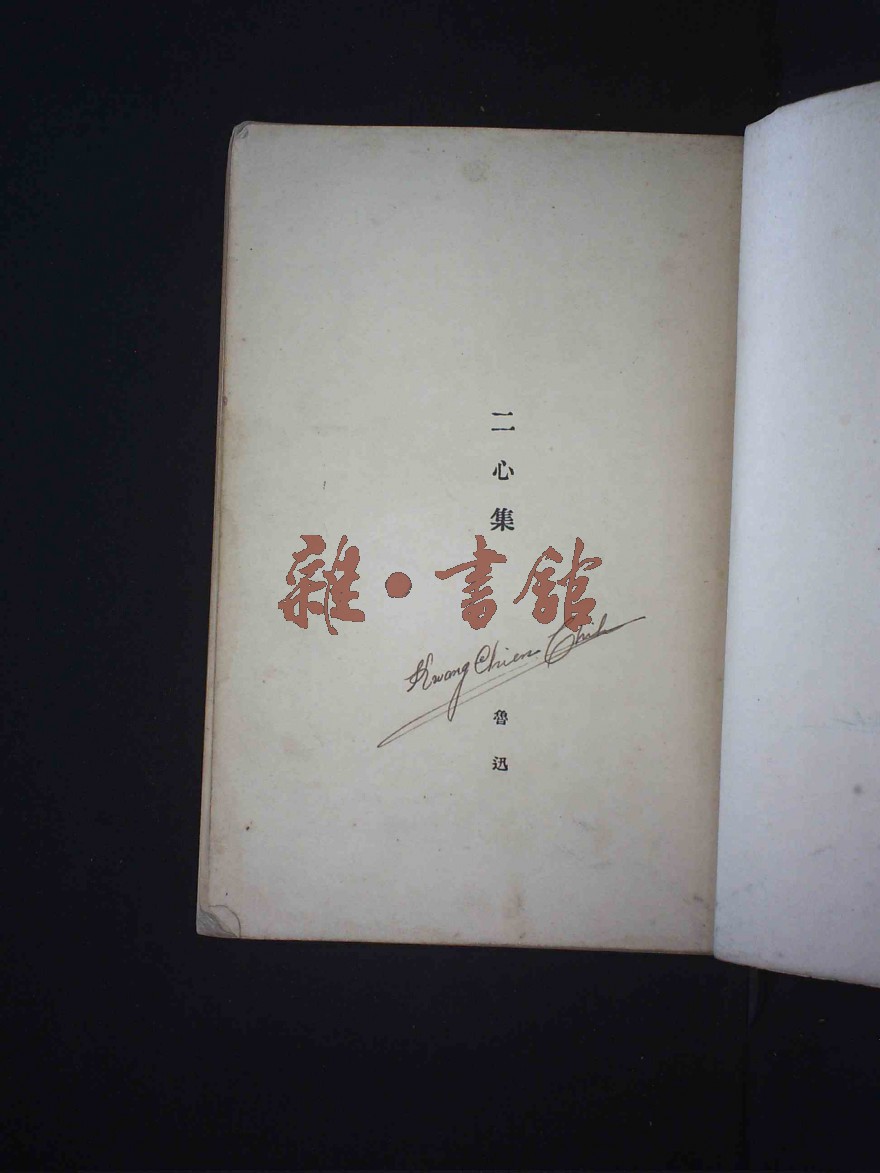 二心集
雜・書館
Kwang Chien Chih
魯迅